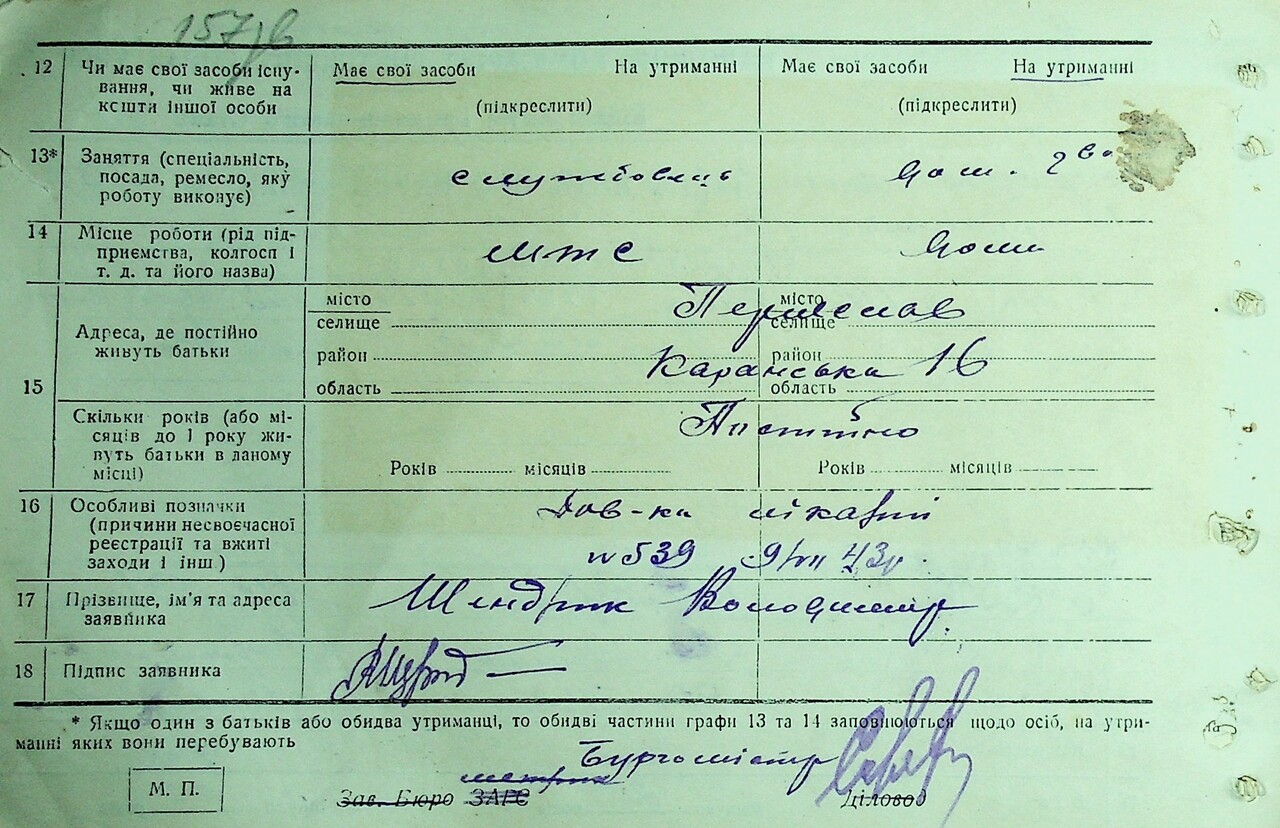 157/в
12 Чи має свої засоби існу- Має свої засоби На утриманні Має свої засоби На утриманні
вання, чи живе на
кошти іншої особи (підкреслити) (підкреслити)
13* Заняття (спеціальність,
посада, ремесло, яку службовець дом. г-во
роботу виконує)
14 Місце роботи (рід під-
приємства, колгосп і МТС дома
т. д. та його назва)
місто Переяслав місто
селище селище
15 Адреса, де постійно
живуть батьки район Каранська 16 район
область область
Скільки років (або мі- Постійно
сяців до 1 року жи-
вуть батьки в даному
місці) Років місяців Років місяців
16 Особливі позначки Дов-ка лікарні
(причини несвоєчасної
реєстрації та вжиті № 539 9/VII 43р.
заходи і інш.)
17 Прізвище, ім'я та адреса Шендрик Володимир
заявника
18 Підпис заявника
* Якщо один з батьків або обидва утриманці, то обидві частини графи 13 та 14 заповнюються щодо осіб, на утри-
манні яких вони перебувають
Бургомістр
М. П. Зав. Бюро ЗАГС Діловод